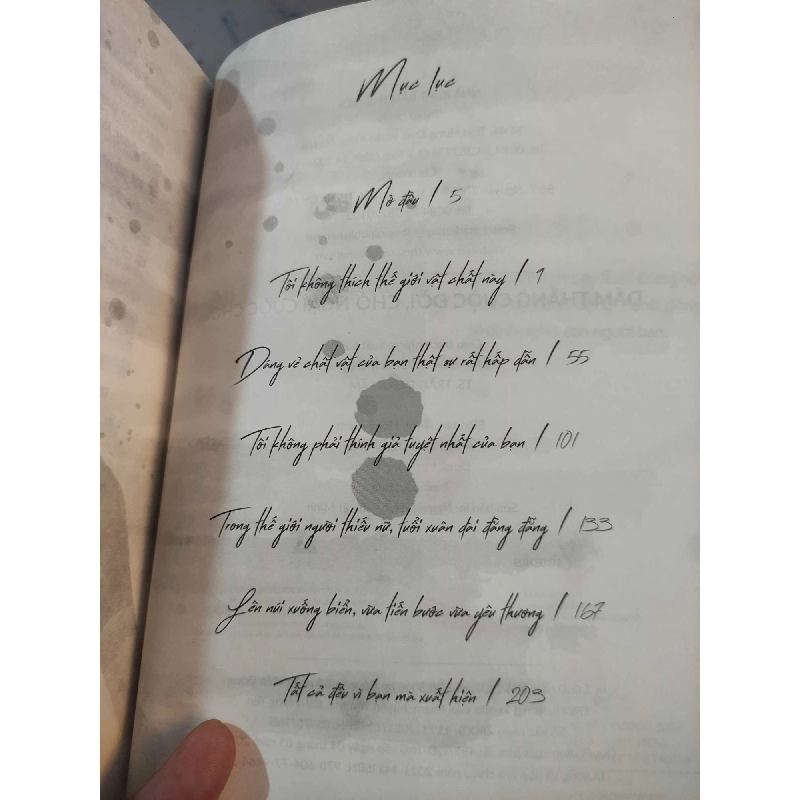 Mục lục
Mở đầu / 5
Tôi không thích thế giới vật chất này / 9
Dáng vẻ chật vật của bạn thật sự rất hấp dẫn / 55
Tôi không phải thính giả tuyệt nhất của bạn / 101
Trong thế giới người thiếu nữ, tuổi xuân dài đằng đẵng / 133
Lên núi xuống biển, vừa tiến bước vừa yêu thương / 167
Tất cả đều vì bạn mà xuất hiện / 203